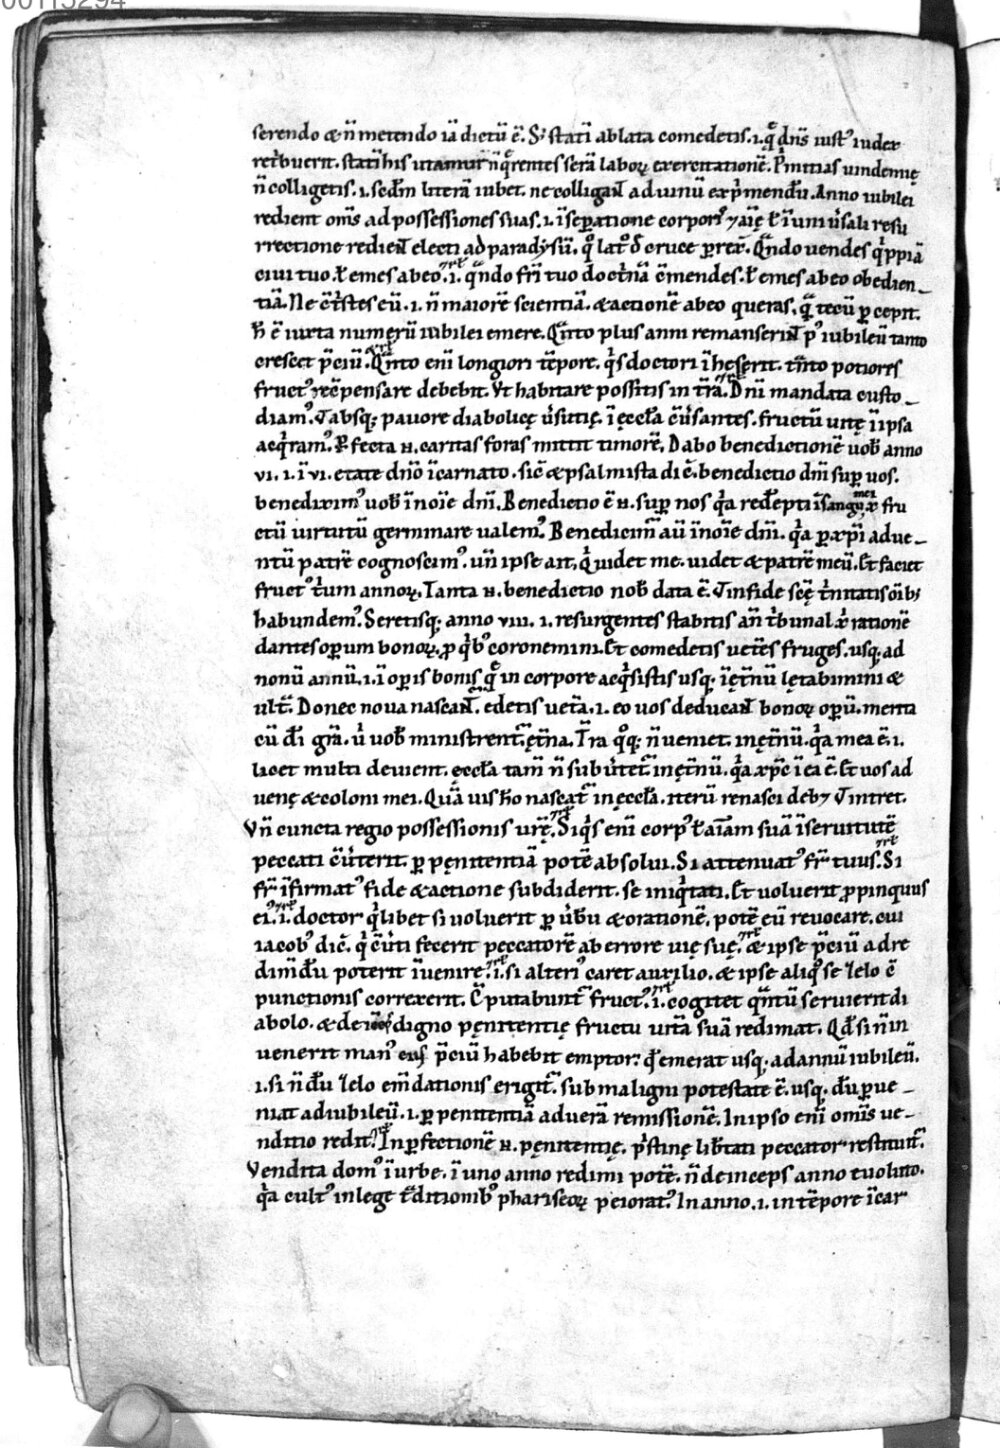 serendo & n̄ metendo iā dictū ē. S; statī ablata comedetis .i. q̄ dn̄s iust᷒ iudex
ret᷑buerit. statī his utamur n̄ q̄rentes serā laboꝝ exercitationē. P᷑mitias uindemię
n̄ colligetis .i. sed̄m literā iubet. ne colligant̄ ad uinū exp᷑mendū. Anno iubilei
redient om̄s ad possessiones suas .i. ī sep̱atione corporis ⁊ aīę ł ī uniu᷑sali resu
rrectione redient̄ electi ad paradysū. q᷒ lat᷒ d̄ cruce p̱rex᷒. Q̄ndo uendes q᷑ppiā
ciui tuo ł emes ab eo .i. q̄ndo frī tuo doct᷑nā cōmendes. ł emes ab eo obedien_
tiā. Ne cōt᷑stes eū .i. n̄ maiorē scientiā. & actionē ab eo queras. q̄ tecū p̱cepit.
h̄ ē iuxta numerū iubilei emere. Q̄nto plus anni remanserint̄ p᷒ iubileū tanto
crescet p̄ciū. Q̄nto enī longiori tēpore. q᷑s doctori īheserit. tn̄to potiores
fruct᷒ recōpensare debebit. Vt habitare possitis in t̄ra. Dn̄i mandata custo_
diam᷒. ⁊ absq; pauore diabolicę u᷑sutię. ī ęccl̄a cōu᷑santes. fructū uitę ī ipsa
acq᷑ram᷒. P̱fecta n̄. caritas foras mittit timorē. Dabo benedictionē uob̄ anno
vi. .i. ī vi. etate dn̄o īcarnato. sic̄ & psalmista dic̄. benedictio dn̄i sup̱ uos.
benedixim᷒ uob̄ ī noīe dn̄i. Benedictio ē n̄. sup̱ nos q᷑a redēpti ī sanguinei x̄ fru
ctū uirtutū germinare ualem᷒. Benedicim᷒ aū ī noīe dn̄i. q᷑a p̱ xp̄i adue_
ntū patrē cognoscim᷒. un̄ ipse ait. q᷑ uidet me. uidet & patrē meū. Et faciet
fruct᷒ t᷑um annoꝝ. Tanta n̄. benedictio nob̄ data ē. ⁊ in fide scę̄ t᷑nitatis oīb;
habundem᷒. Seretisq; anno viii. .i. resurgentes stabitis an̄ t᷑bunal x᷑ rationē
dantes op̱um bonoꝝ. p̱ q᷑b᷒ coronemini. Et comedetis uet̄es fruges. usq; ad
nonū annū .i. ī op̱is bonis q̄ in corpore acq᷑sistis usq; ī ęt̄nū lętabimini &
ult᷑. Donec noua nascant̄. edetis uet̄a .i. eo uos deducant̄ bonoꝝ op̱ū. merita
cū dī grā. u᷑ uob̄ ministrent̄ ęt̄na. T̄ra q᷒q; n̄ ueniet. in ęt̄nū. q᷑a mea ē .i.
licet multi deuient. ęccl̄a tam̄ n̄ subu᷑tet̄ in ęt̄nū. q᷑a xp̄c ī ea ē. Et uos ad
uenę & coloni mei. Quā uis h᷒o nascat̄ in ęccl̄a. iterū renasci deb; ⁊ intret.
Vn̄ cuncta regio possessionis urę̄. Siq᷑s enī corp᷒ ł aīam suā ī seruitutē
peccati cōu᷑terit. p̱ pęnitentiā potē absolui. Si attenuat᷒ fr̄ tuus. Si
fr̄ īfirmat᷒ fide & actione subdiderit. se iniq᷑tati. Et uoluerit p̱pinquus
ei᷒ .i. doctor q᷑libet si uoluerit p̱ u᷑bū & orationē. potē eū reuocare. cui
iacob᷒ dic̄. q᷑ cōu᷑ti fecerit peccatorē ab errore uię suę. & ipse p̄ciū ad re
dim̄dū poterit īuenire .i. si alteri᷒ caret auxilio. & ipse aliq᷒ se zelo cō
punctionis correxerit. Cōputabunt̄ fruct᷒ .i. cogitet q̄ntū seruierit di
abolo. & de digno pęnitentię fructu uitā suā redimat. Qd̄ si n̄ in
uenerit man᷒ ei᷒ p̄ciū habebit emptor: qd̄ emerat usq; ad annū iubileū.
.i. si n̄ dū zelo em̄dationis erigit̄. sub maligni potestate ē. usq; dū p̱ue_
niat ad iubileū .i. p̱ penitentiā ad uerā remissionē. In ipso enī om̄is ue_
nditio redit. In p̱fectionē n̄. pęnitentię. p᷑stinę lib̄tati peccator restituit̄.
Vendita dom᷒ ī urbe. ī uno anno redimi potē. n̄ deinceps anno euoluto.
q᷑a cult᷒ in lege t᷑ditionib᷒ phariseoꝝ peiorat᷒. In anno .i. in tēpore īcar